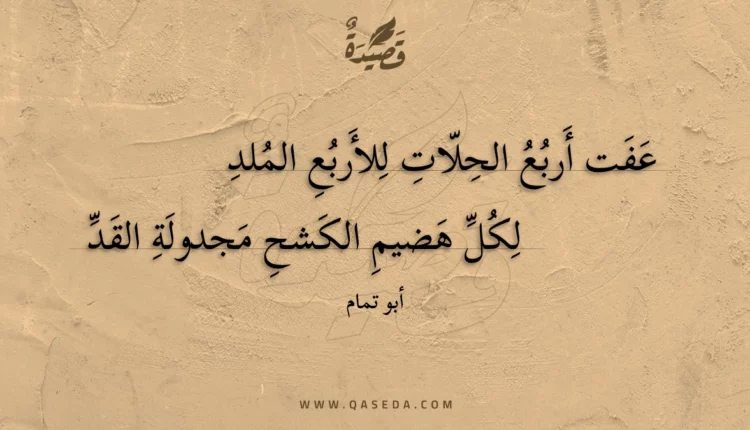 قَصِيدَةٌ
عَفَت أَربُعُ الحِلّاتِ لِلأَربُعِ المُلدِ
لِكُلِّ هَضيمِ الكَشحِ مَجدولَةِ القَدِّ
أبو تمام
WWW.QASEDA.COM